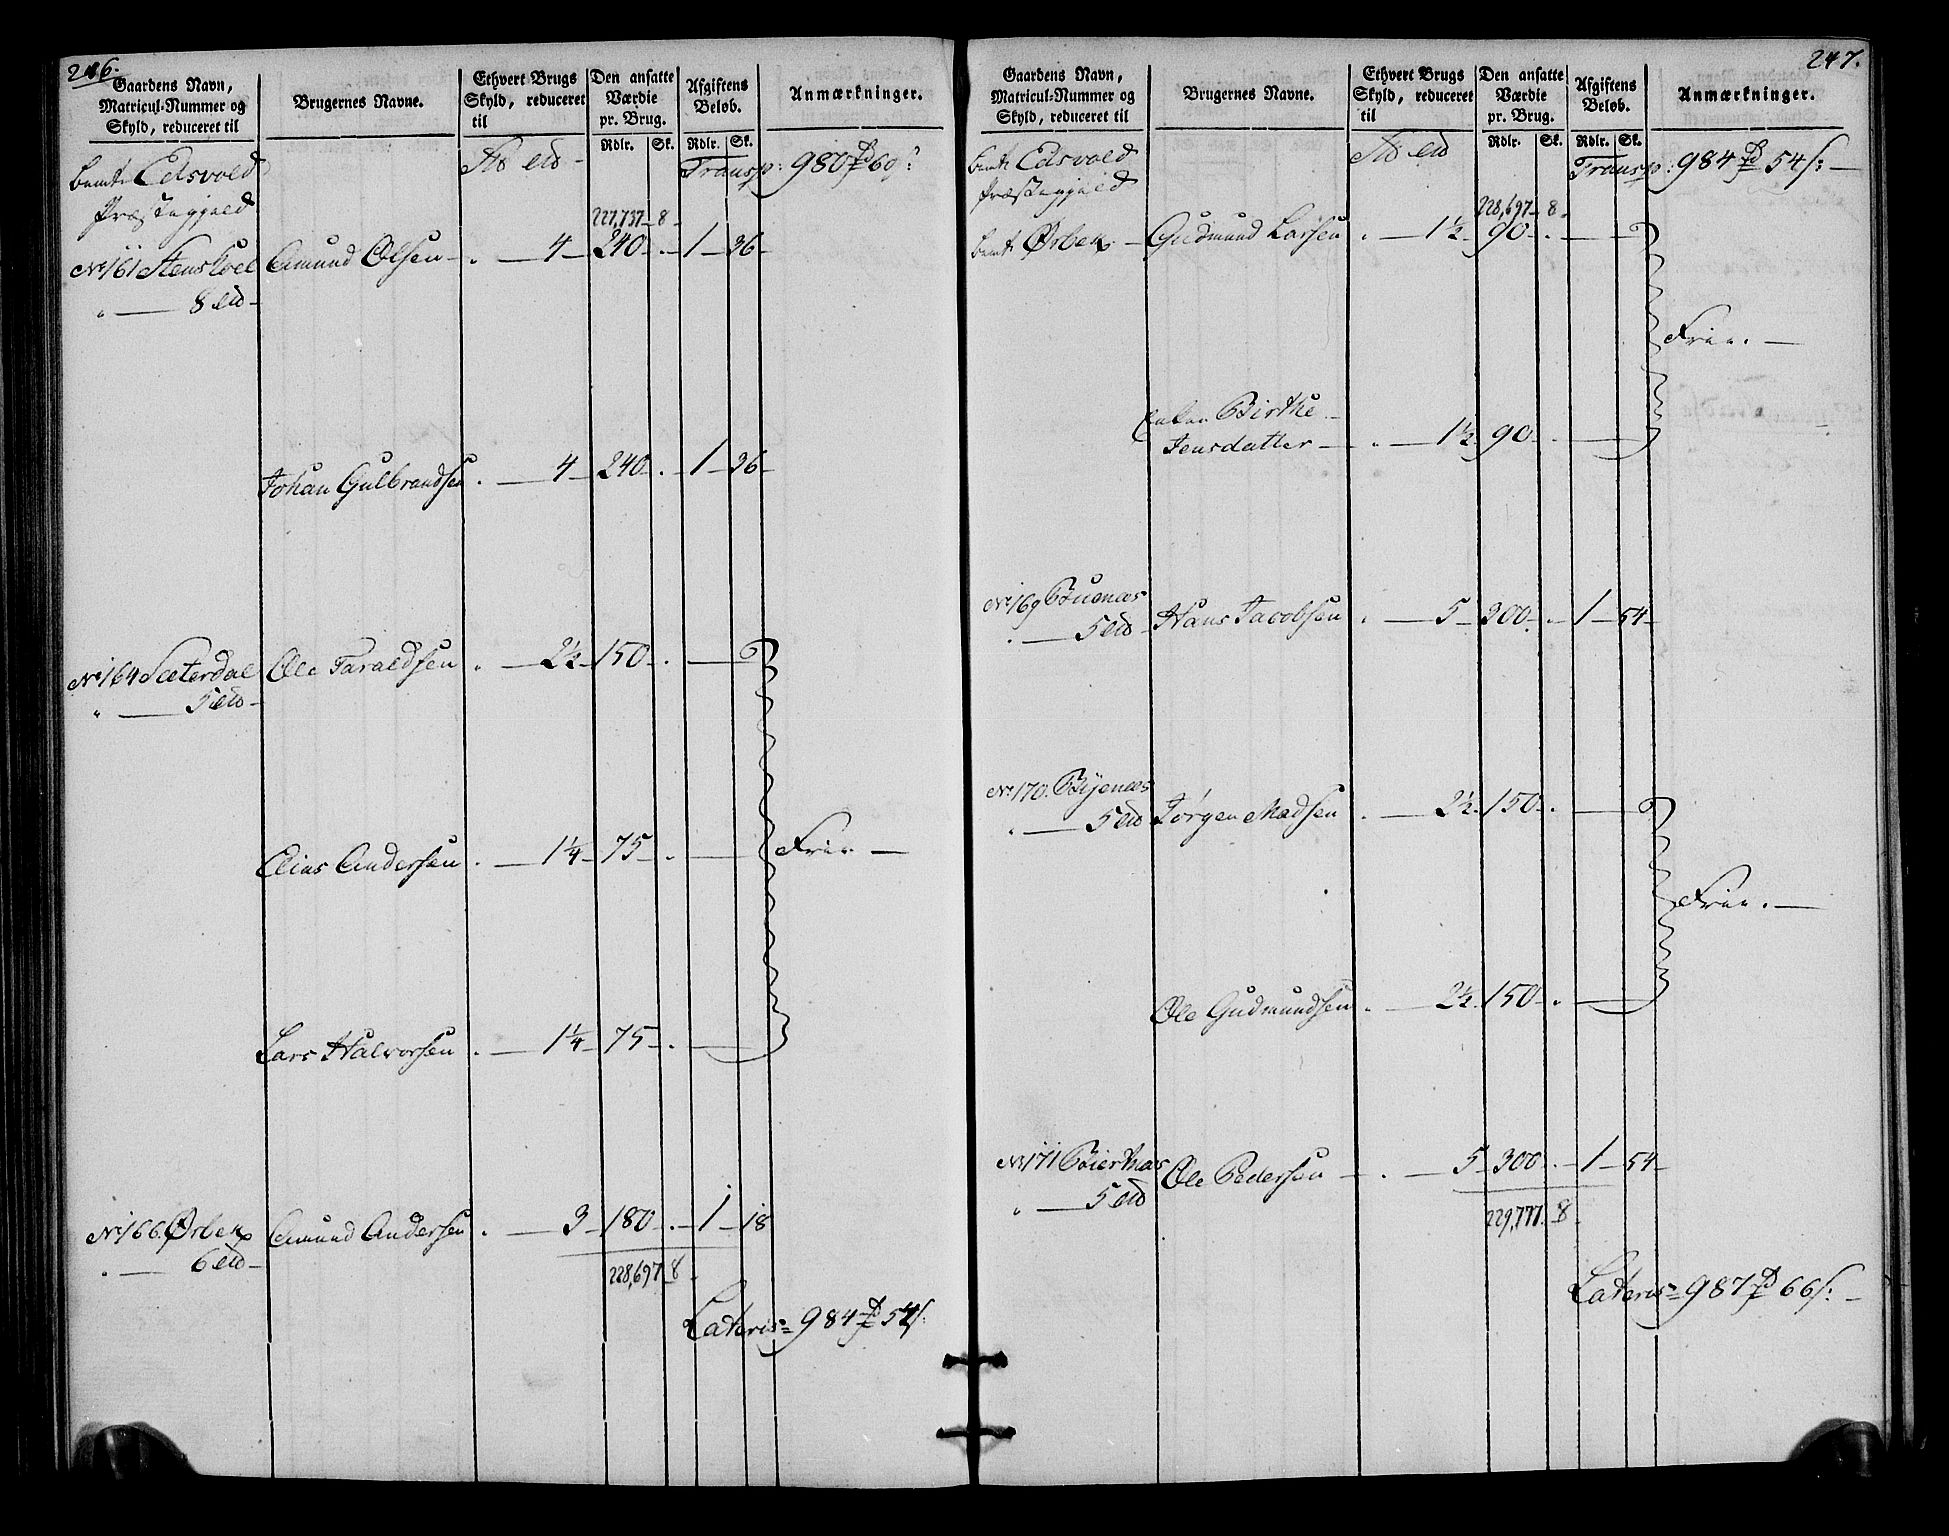 246.
Gaardens Navn, Matricul-Nummer og Skyld, reduceret til
Brugernes Navne.
Ethvert Brugs Skyld, reduceret til
Den ansatte Værdie pr. Brug.
Afgiftens Beløb.
Anmærkninger.
Rdlr. Sk. Rdlr. Sk.
bemte Edsvold
Præstegjeld
Transp: 980 rd 60 s:
227,737 - 8 -
No 161 Stenshoel Amund Olsen - 4 - 240 - 1 - 36 -
" — 8 lb -
Johan Gulbrandsen . — 4 - 240 - . 1 - 36 -
No 164 Sæterdal Ole Taraldsen " — 2½ - 150 - .
" — 5 lb -
Elias Andersen . — 1¼ - 75 - . Frie —
Lars Halvorsen . — 1¼ - 75 - .
No 166. Ørbek Amund Andersen . — 3 - 180 - . - 1 - 18
" — 6 lb -
228,697 - 8 -
Lateris = 984 rd 54 s:
247.
Gaardens Navn, Matricul-Nummer og Skyld, reduceret til
Brugernes Navne.
Ethvert Brugs Skyld, reduceret til
Den ansatte Værdie pr. Brug.
Afgiftens Beløb.
Anmærkninger.
Rdlr. Sk. Rdlr. Sk.
bemte Edsvold
Præstegjeld
Transp: 984 rd 54 s: —
228,697 - 8 -
bemte Ørbek - Gudmund Larsen . — 1½ - 90 - .
Frie. —
Enken Birthe
Jensdatter — " — 1½ - 90 - .
No 169 Buenæs Hans Jacobsen . — 5 - 300 - . 1 - 54 -
. — 5 lb -
No 170. Byenæs Jørgen Madsen . — 2½ - 150 - .
" — 5 lb
Frie. —
Ole Gudmundsen . — 2½ - 150 - .
No 171 Bierknæs Ole Pedersen — . — 5 - 300 - . 1 - 54 -
" — 5 lb
229,777. 8 -
Lateris = 987 rd 66 s: —